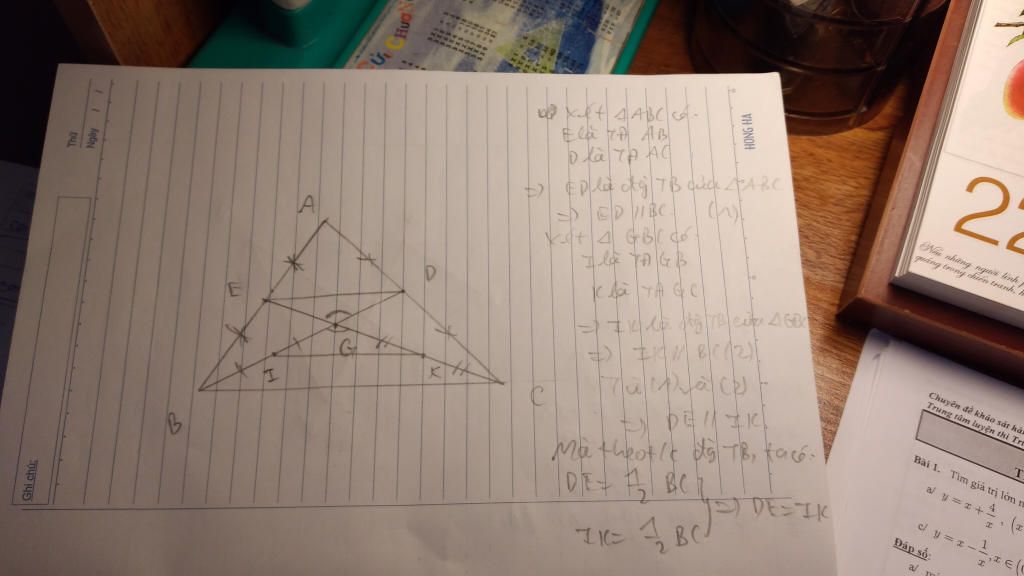 ỨU CHƯƠN
Thứ
Ngày
HONG HA
Ghi chú:
Xét △ABC có:
E là TĐ AB
D là TĐ AC
=) ED là đg TB của △ABC
=) ED // BC (1)
Xét △ GBC có:
I là TĐ GB
K là TĐ GC
=) IK là đg TB của △GBC
=) IK // BC (2)
Từ (1) và (2)
=) DE // IK
Mà theo t/c đg TB, ta có:
DE = 1/2 BC
IK = 1/2 BC
=) DE = IK
A
E
D
G
I
K
B
C
22
Nếu những người lính p
quảng trong chiến tranh, h
Chuyên đề khảo sát hà
Trung tâm luyện thi Tr
T
Bài 1. Tìm giá trị lớn n
a/ y = x + 4/x , (x
c/ y = x − 1/x , x ∈ (
Đáp số:
a/ mi